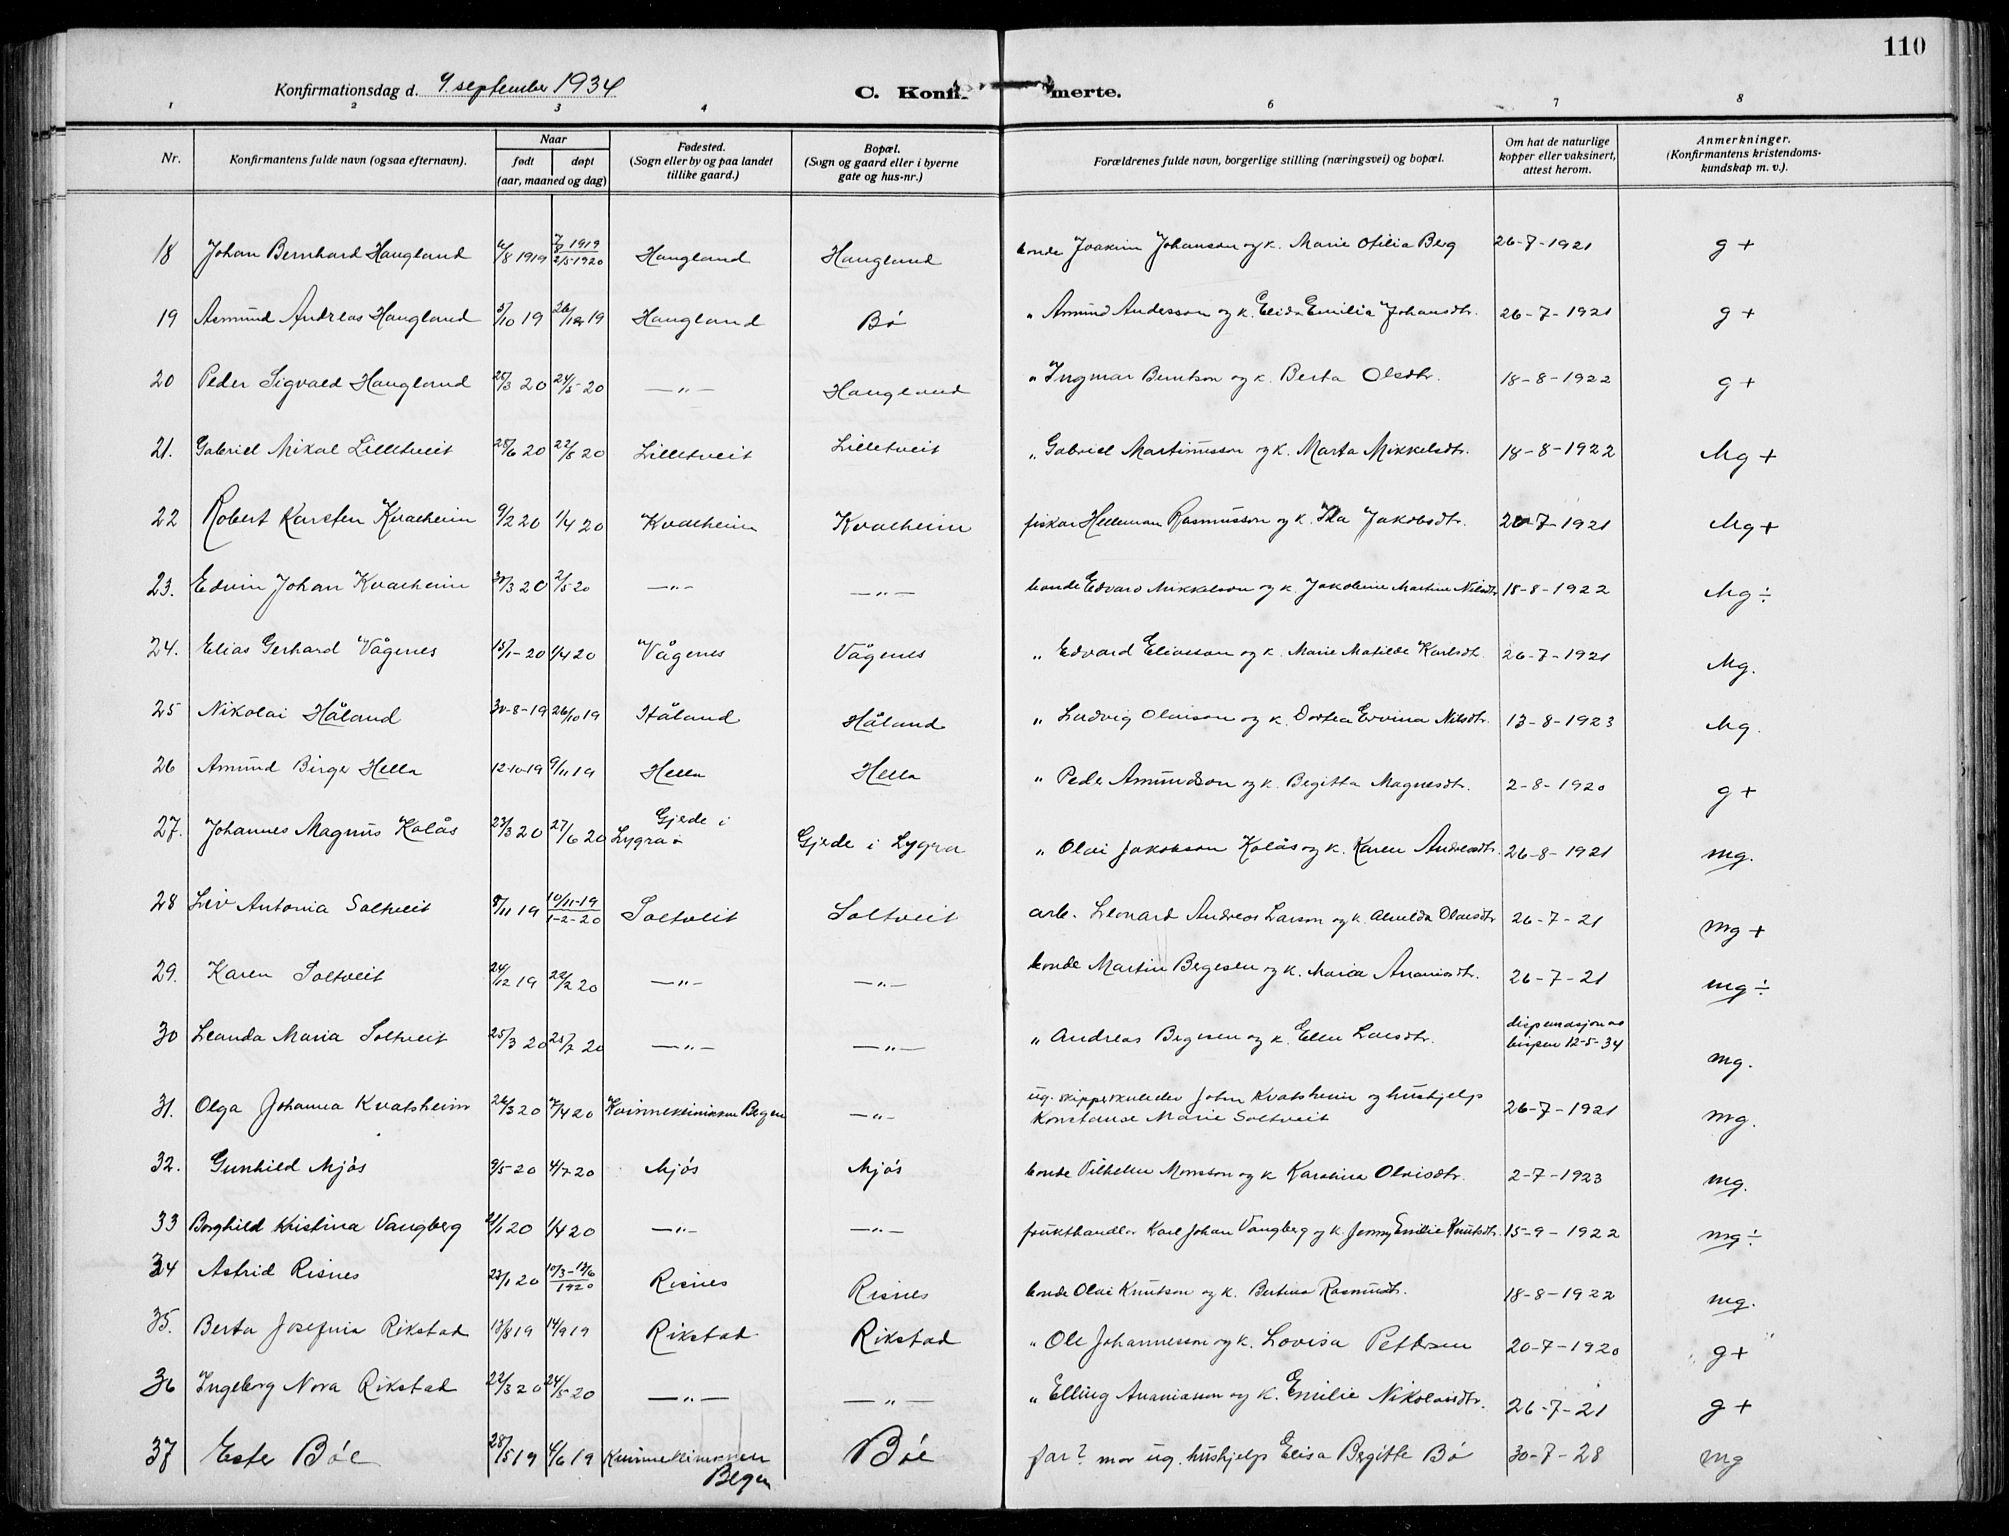 110
Konfirmationsdag d. 9. september 1934
C. Konfi merte.
1 2 3 4 6 7 8
Nr. Konfirmantens fulde navn (ogsaa efternavn). Naar født døpt (aar, maaned og dag) Fødested. (Sogn eller by og paa landet tillike gaard.) Bopæl. (Sogn og gaard eller i byerne gate og hus-nr.) Forældrenes fulde navn, borgerlige stilling (næringsvei) og bopæl. Om hat de naturlige kopper eller vaksinert, attest herom. Anmerkninger. (Konfirmantens kristendoms-kundskap m. v.).
18 Johan Bernhard Haugland 6/8 1919 2/5 1920 Haugland Haugland bonde Joakim Johanson og k. Marie Otilia Berg 26-7-1921 g +
19 Asmund Andreas Haugland 5/10 19 26/12 19 Haugland Bö " Amund Andersson og k. Elida Emilie Johansdtr. 26-7-1921 g +
20 Peder Sigvald Haugland 25/3 20 24/5 20 —"— Haugland " Ingmar Berntson og k. Berta Olsdtr. 18-8-1922 g +
21. Gabriel Mikal Lilletveit 28/6 20 22/8 20 Lilletveit Lilletveit " Gabriel Martinusson og k. Marta Mikkelsdtr. 18-8-1922 Mg +
22 Robert Karsten Kvalheim 9/2 20 1/4 20 Kvalheim Kvalheim fiskar Helleman Rasmusson og k. Ida Jakobsdtr. 20-7-1921 Mg +
23. Edvin Johan Kvalheim 30/3 20 2/5 20 —"— —"— bonde Edvard Mikkelson og k. Jakobine Martine Nilsdtr 18-8-1922 Mg ÷
24. Elias Gerhard Vågenes 15/1- 20 1/4 20 Vågenes Vågenes " Edvard Eliasson og k. Marie Matilde Karlsdtr. 26-7-1921 Mg.
25 Nikolai Håland 30-8-19 26/10 19 Håland Håland " Ludvig Olaison og k. Dortea Ervina Nilsdtr. 13-8-1923 Mg.
26 Amund Birger Hella 12-10-19 9/11 19 Hella Hella " Peder Amundson og k. Begitta Magnesdtr. 2-8-1920 g +
27. Johannes Magnus Kolås 23/3 20 27/6 20 Gjerde i Lygra Gjerde i Lygra " Olai Jakobson Kolås og k. Karen Andreasdtr. 26-8-1921 mg.
28 Liv Antonia Soltveit 8/11 19 10/11-19 1-2-20 Soltveit Soltveit arb. Leonard Andreas Larson og k. Alvilda Olaisdtr 26-7-21 mg +
29. Karen Soltveit 24/12 19 22/2 20 —"— —"— bonde Martin Bergesen og k. Maria Ananiasdtr. 26-7-21 mg ÷
30 Leanda Maria Soltveit 25/3 20 25/7 20 —"— —"— " Andreas Bergesen og k. Ellen Larsdtr. dispensasjon av bispen 12-5-34 mg.
31. Olga Johanna Kvalsheim 26/3 20 7/4 20 Kvinneklinikken Bergen —"— ug. skipperskuleelev John Kvalsheim og hushjelp Konstanse Marie Soltveit 26-7-1921 mg.
32. Gunhild Mjös 9/5- 20 4/7 20 Mjös Mjös bonde Vilhelm Monsson og k. Karolina Olaisdtr. 2-7-1923 mg.
33 Borghild Kristina Vangberg 2/1 20 1/4 20 —"— —"— frukthandlar Karl Johan Vangberg og k. Jenny Emilie Knutsdtr. 15-9-1922 mg ÷
34 Astrid Risnes 23/1 20 10/3 - 13/6 1920 Risnes Risnes bonde Olai Knutson og k. Bertina Rasmusdtr. 18-8-1922 mg.
35. Berta Josefina Rikstad 13/8 19 14/9 19 Rikstad Rikstad " Ole Johannesson og k. Lovisa Pettersen 20-7-1920 g +
36 Ingeborg Nora Rikstad 22/3 20 24/5 20 —"— —"— " Elling Ananiasson og k. Emilie Nikolaisdtr. 26-7-21 g +
37 Ester Böe 28/5 19 4/6 19 Kvinneklinikken Bergen Böe far? mor ug. hushjelp Elisa Bergitte Bö 30-7-28 mg